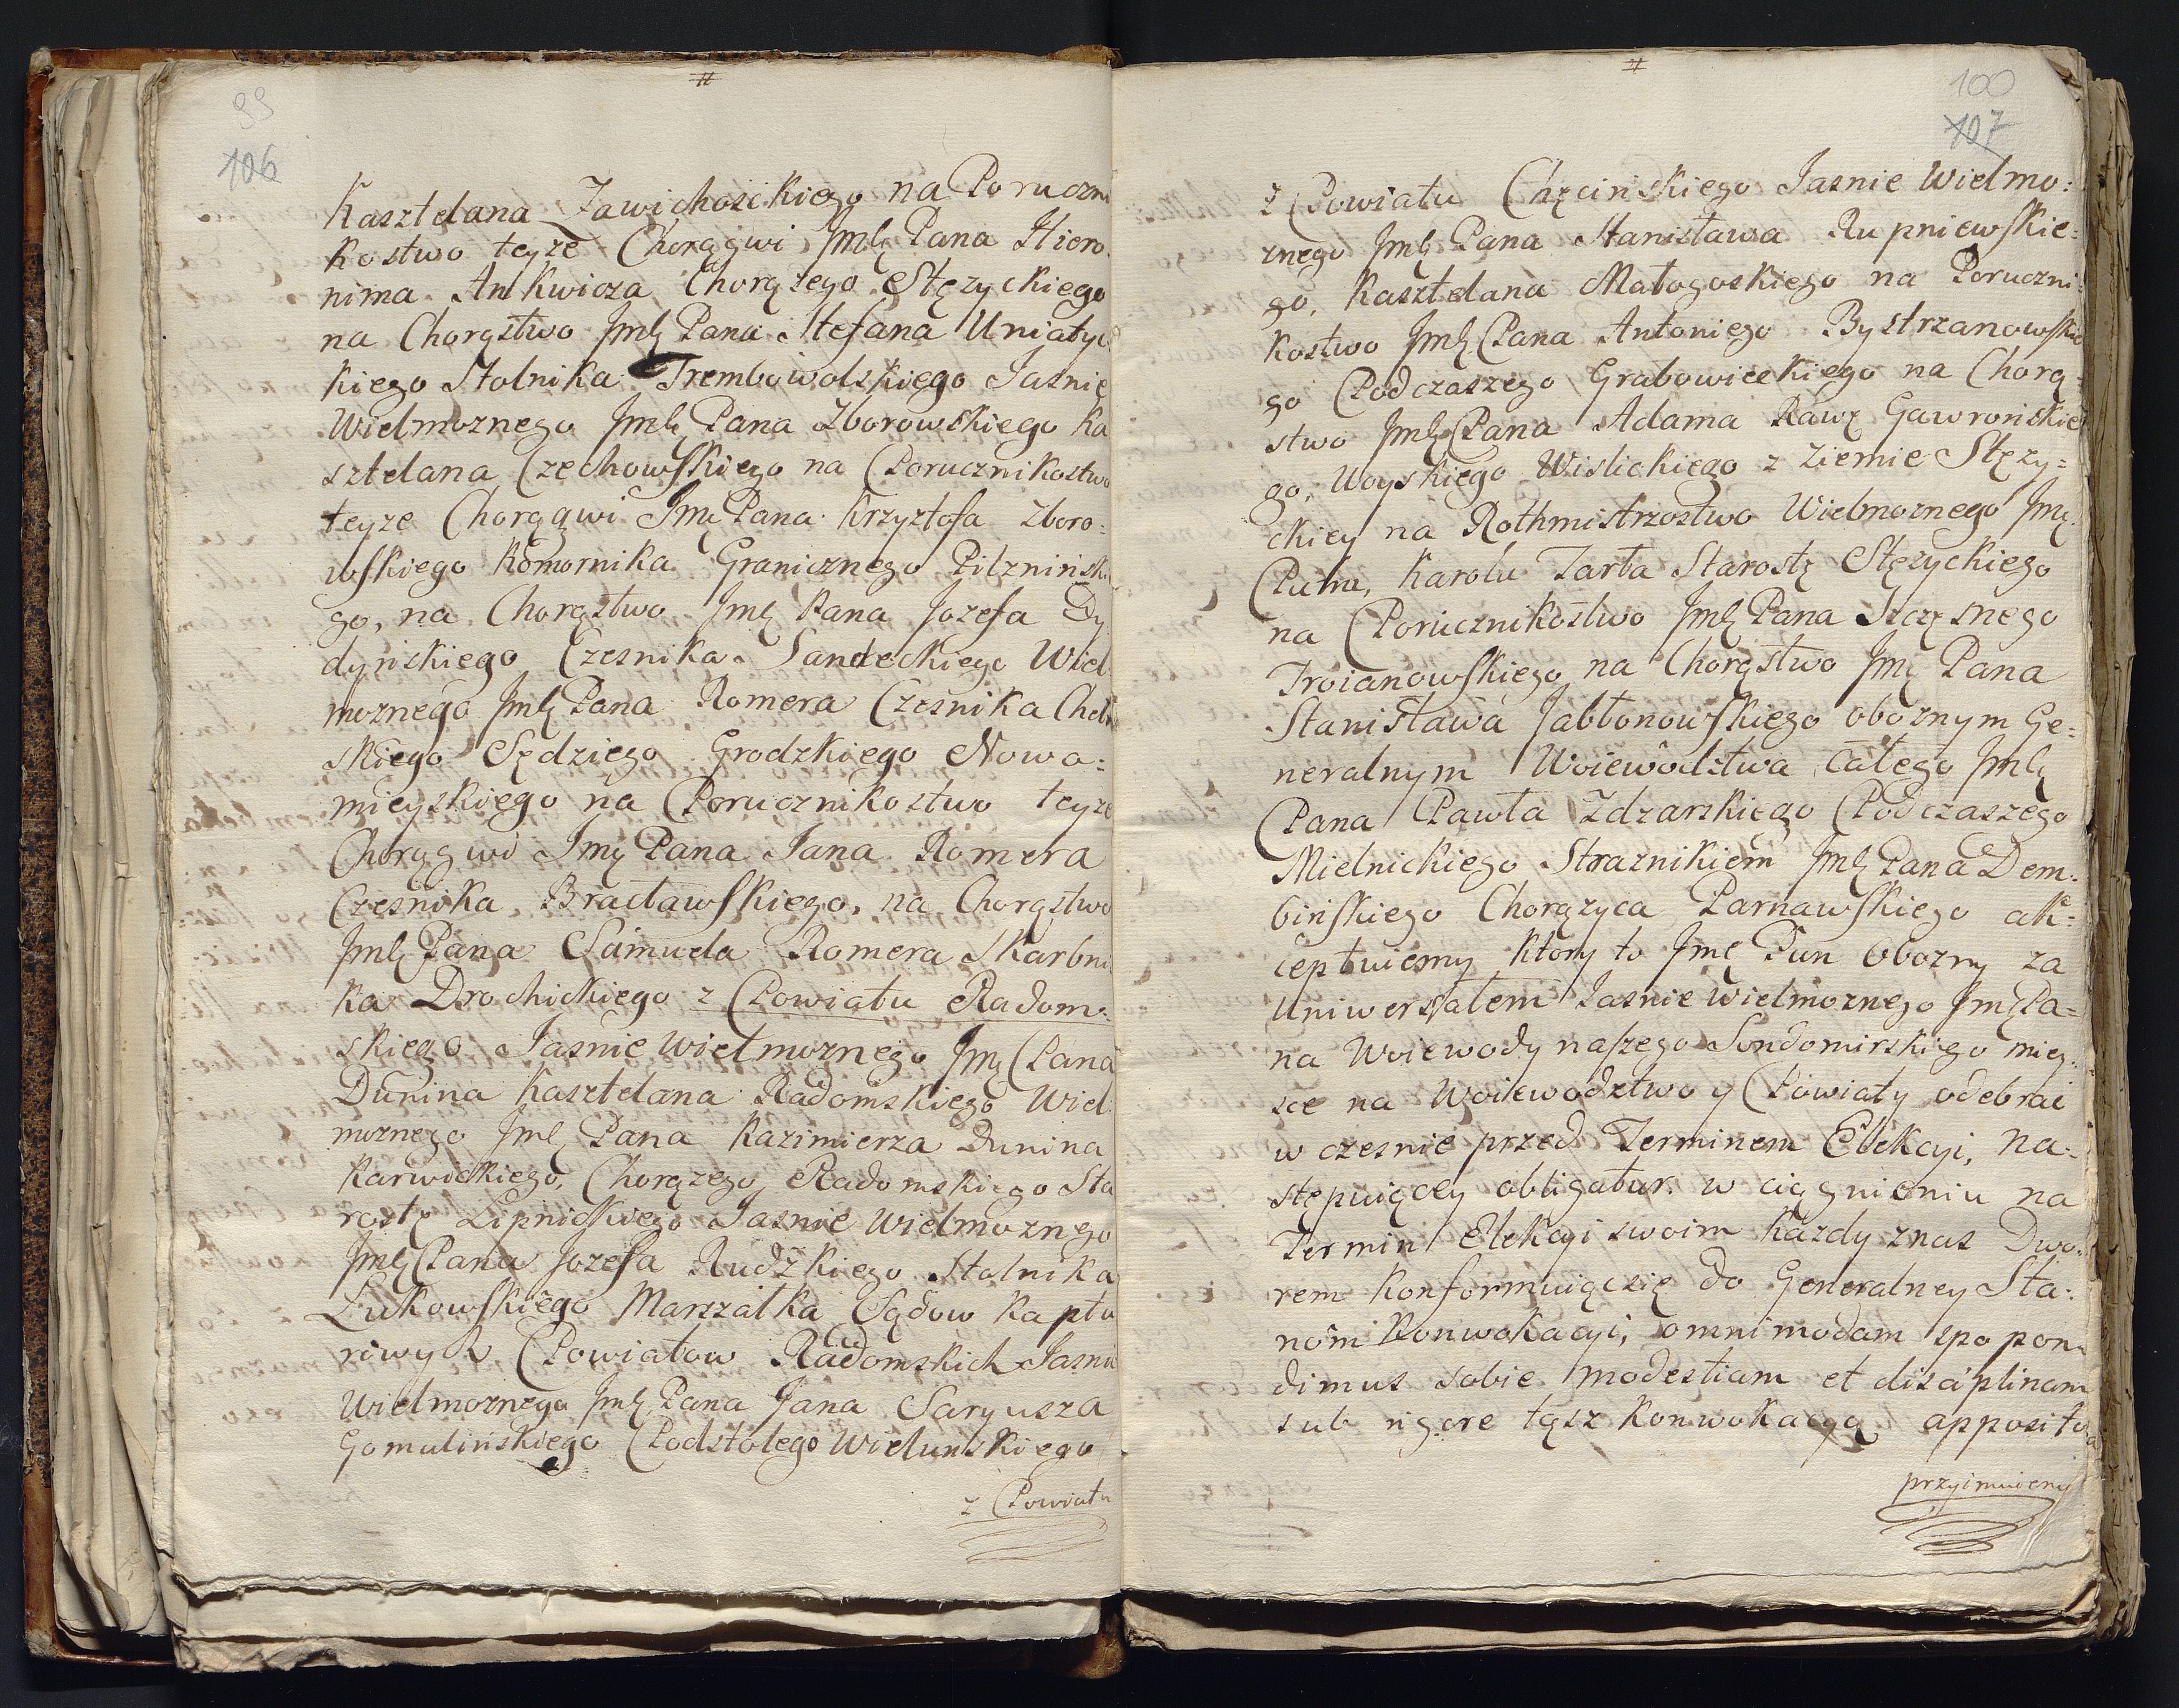 99
106
Kasztelana Zawichoskiego na Poruczni
kostwo teyże Chorągwi Jmę Pana Hiero
nima Ankwicza Chorążego Stężyckiego
na Chorąstwo Jmę Pana Stefana Uniatyc
kiego Stolnika Trembowolskiego Jasnie
Wielmoznego Jmę Pana Zborowskiego Ka
sztelana Czechowskiego na Porucznikostwo
teyże Chorągwi Jmę Pana Krzysztofa Zboro=
wskiego Komornika Granicznego Pilznińskie
go, na Chorąstwo Jmę Pana Jozefa Dy
dyńskiego Czesnika Sandeckiego Wiel
moznego Jmę Pana Romera Czesnika Chełm
skiego Sędziego Grodzkiego Nowo=
mieyskiego na Porucznikostwo teyże
Chorągwi Jmę Pana Jana Romera
Czesnika Bracławskiego, na Chorąstwo
Jmę Pana Samuela Romera Skarbni
ka Drochickiego z Powiatu Radom=
skiego Jasnie Wielmoznego Jmę Pana
Dunina Kasztelana Radomskiego Wiel
moznego Jmę Pana Kazimierza Dunina
Karwickiego, Chorązego Radomskiego Sta
rostę Lipnickiego Jasnie Wielmoznego
Jmę Pana Jozefa Rudzkiego Stolnika
Łukowskiego Marszałka Sądow Kaptu
rowych Powiatow Radomskich Jasnie
Wielmoznego Jmę Pana Jana Saryusza
Gomulińskiego Podstolego Wielunskiego
z Powiatu
100
107
z Powiatu Chęcińskiego Jasnie Wielmo=
znego Jmę Pana Stanisława Rupniewskie=
go, Kasztelana Małogoskiego na Poruczni=
kostwo Jmę Pana Antoniego Bystrzanowskie
go Podczaszego Grabowieckiego na Chorą=
stwo Jmę Pana Adama Rawę Gawrońskie
go, Woyskiego Wislickiego z Ziemie Stęzy=
ckiey na Rothmistrzostwo Wielmoznego Jmę
Pana, Karola Tarła Starostę Stęzyckiego
na Porucznikostwo Jmę Pana Szczęsnego
Troianowskiego na Chorąstwo Jmę Pana
Stanisława Jabłonowskiego oboznym Ge=
neralnym Woiewodstwa całego Jmę
Pana Pawła Zdzarskiego Podczaszego
Mielnickiego Straznikiem Jmę Pana Dem=
bińskiego Chorązyca Parnawskiego ak=
ceptuiemy ktory to Jmę Pan Obozny za
Uniwersałem Jasnie Wielmoznego Jmę Pa=
na Woiewody naszego Sendomirskiego miey=
sce na Woiewodztwo y Powiaty odebrać
w czesnie przed Terminem Elekcyi, na=
stępuiącey obligatur. w ciągnieniu na
Termin Elekcyi swoim kazdy z nas Dwo=
rem konformuiąc się do Generalney Sta=
nów Konwokacyi, omnimodam spopon=
dimus sobie modestiam et disciplinam
sub rigore tąsz Konwokacyą apposito
przyimuiemy